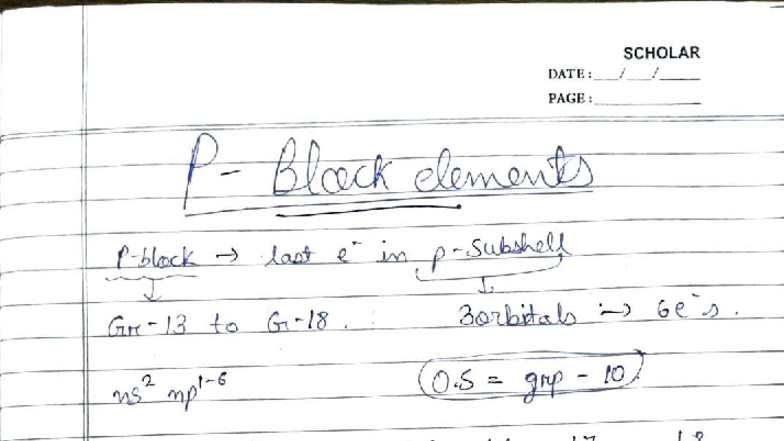 SCHOLAR
DATE: __/__/____
PAGE: ________
P-Block elements
P-block → last e⁻ in p-Subshell
↓ ↓
Gr-13 to Gr-18. 3 orbitals → 6e⁻s.
ns² np¹⁻⁶ O.S = grp - 10